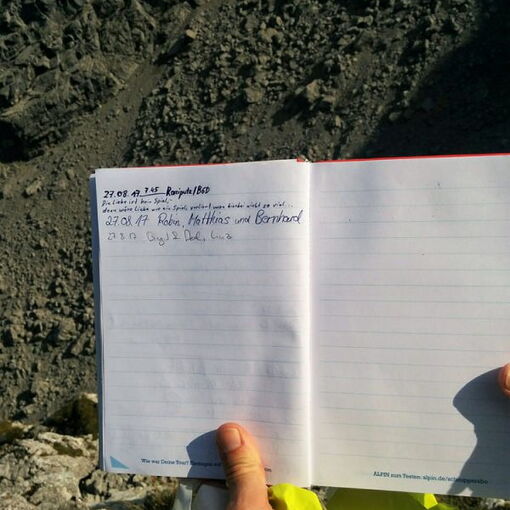 27.08.17 7.45 Kranputz/BGD
Die Liebe ist kein Spiel,
denn wäre Liebe wie ein Spiel, verliert man hierbei nicht so viel...
27.08.17 Robin, Matthias und Bernhard
27.8.17 &
Wie war Deine Tour?
ALPIN zum Testen: alpin.de/schnupperabo